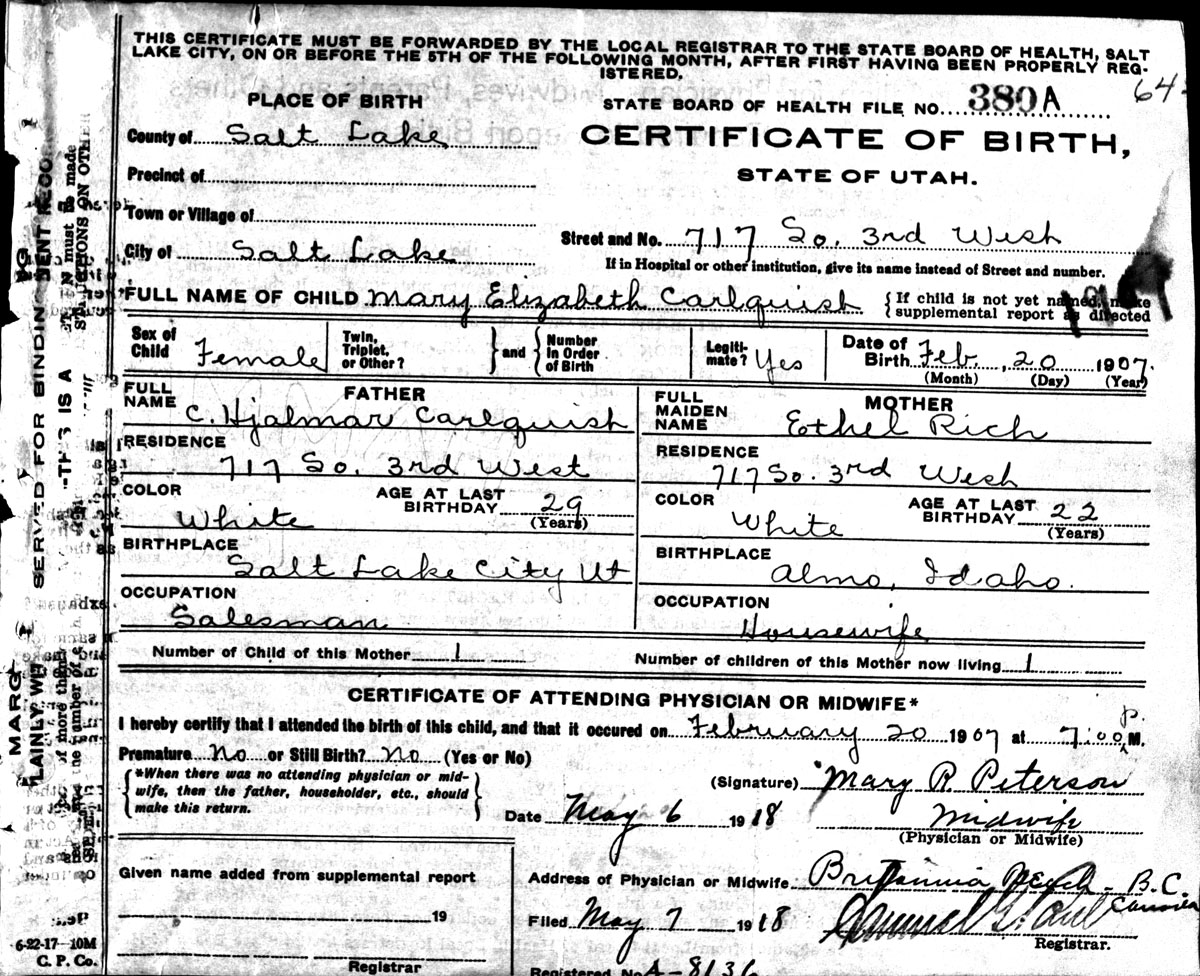 THIS CERTIFICATE MUST BE FORWARDED BY THE LOCAL REGISTRAR TO THE STATE BOARD OF HEALTH, SALT
LAKE CITY, ON OR BEFORE THE 5TH OF THE FOLLOWING MONTH, AFTER FIRST HAVING BEEN PROPERLY REG-
ISTERED.
64
PLACE OF BIRTH
STATE BOARD OF HEALTH FILE NO. 380 A
County of Salt Lake
CERTIFICATE OF BIRTH,
Precinct of
STATE OF UTAH.
Town or Village of
Street and No. 717 So. 3rd West
City of Salt Lake
If in Hospital or other institution, give its name instead of Street and number.
FULL NAME OF CHILD Mary Elizabeth Carlquist
{If child is not yet named, make
supplemental report as directed
Sex of Child Female
Twin, Triplet, or Other?
} and {
Number In Order of Birth
Legiti- mate? Yes
Date of Birth Feb. 20 1907.
(Month) (Day) (Year)
FATHER
FULL NAME C. Hjalmar Carlquist
MOTHER
FULL MAIDEN NAME Ethel Rich
RESIDENCE 717 So. 3rd West
RESIDENCE 717 So. 3rd West
COLOR White
AGE AT LAST BIRTHDAY 29 (Years)
COLOR White
AGE AT LAST BIRTHDAY 22 (Years)
BIRTHPLACE Salt Lake City Ut
BIRTHPLACE Almo, Idaho.
OCCUPATION Salesman
OCCUPATION Housewife
Number of Child of this Mother 1
Number of children of this Mother now living 1
CERTIFICATE OF ATTENDING PHYSICIAN OR MIDWIFE*
I hereby certify that I attended the birth of this child, and that it occured on February 20 1907 at 7:00 P. M.
Premature No or Still Birth? No (Yes or No)
{*When there was no attending physician or mid-
wife, then the father, householder, etc., should
make this return.}
(Signature) Mary R. Peterson
Date May 6 1918
Midwife
(Physician or Midwife)
Given name added from supplemental report
Address of Physician or Midwife Britannia Beach - B.C.
Canada
19
Filed May 7 1918
Samuel G. Paul
Registrar.
Registrar
Registered No. A-8136
6-22-17-10M
C. P. Co.